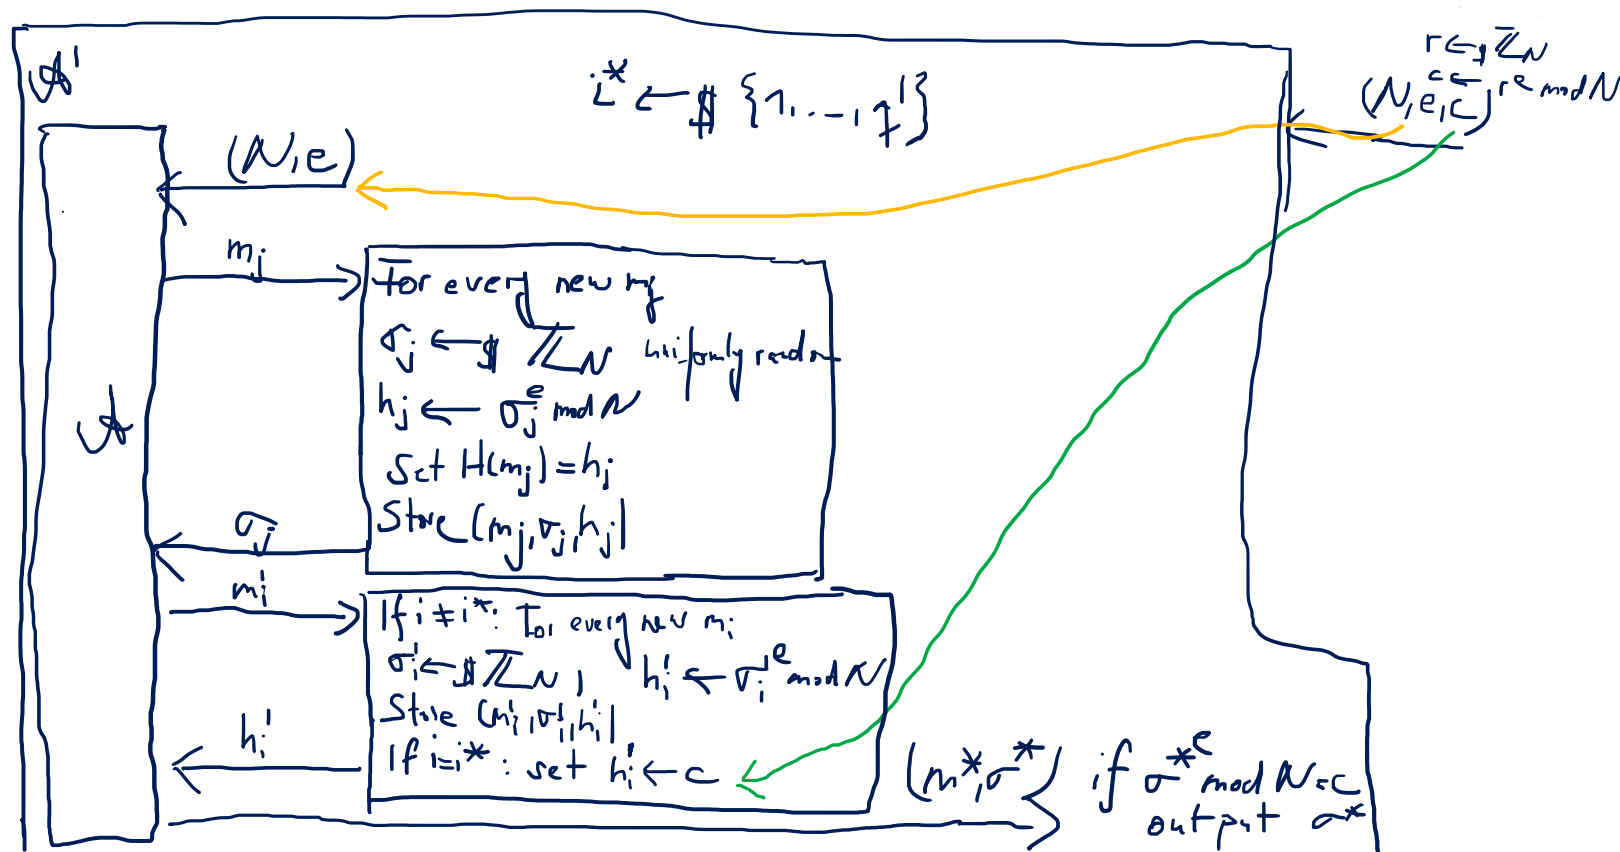 𝒜'
i* ←$ {1,...,q'}
r ←$ ℤ_N
c ← r^e mod N
(N,e,c)
(N,e)
𝒜
m_j
For every new m_j
σ_j ←$ ℤ_N uniformly random
h_j ← σ_j^e mod N
Set H(m_j) = h_j
Store (m_j,σ_j,h_j)
σ_j
m_i'
If i ≠ i*: For every new m_i
σ_i' ←$ ℤ_N, h_i' ← σ_i'^e mod N
Store (m_i',σ_i',h_i')
If i=i*: set h_i' ← c
h_i'
(m*,σ*)
if σ*^e mod N = c
output σ*